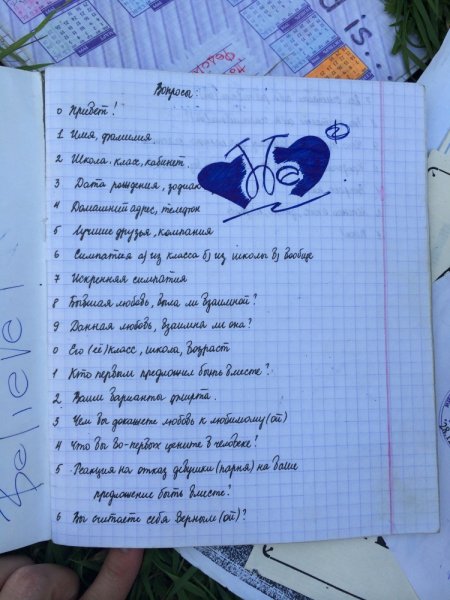 Вопросы:
0 Привет!
1 Имя, фамилия
2 Школа. класс, кабинет
3 Дата рождения, зодиак
4 Домашний адрес, телефон
5 Лучшие друзья, компания
6 Симпатия а) из класса б) из школы в) вообще
7 Искренняя симпатия
8 Бывшая любовь, была ли взаимной?
9 Данная любовь, взаимна ли она?
0 Его (её) класс, школа, возраст
1 Кто первым предложил быть вместе?
2. Ваши варианты флирта.
3 Чем вы докажете любовь к любимому (ой)
4 Что вы во-первых цените в человеке!
5 Реакция на отказ девушки (парня) на ваше
предложение быть вместе?
6 Вы считаете себя верным (ой)?
Believe!
is...